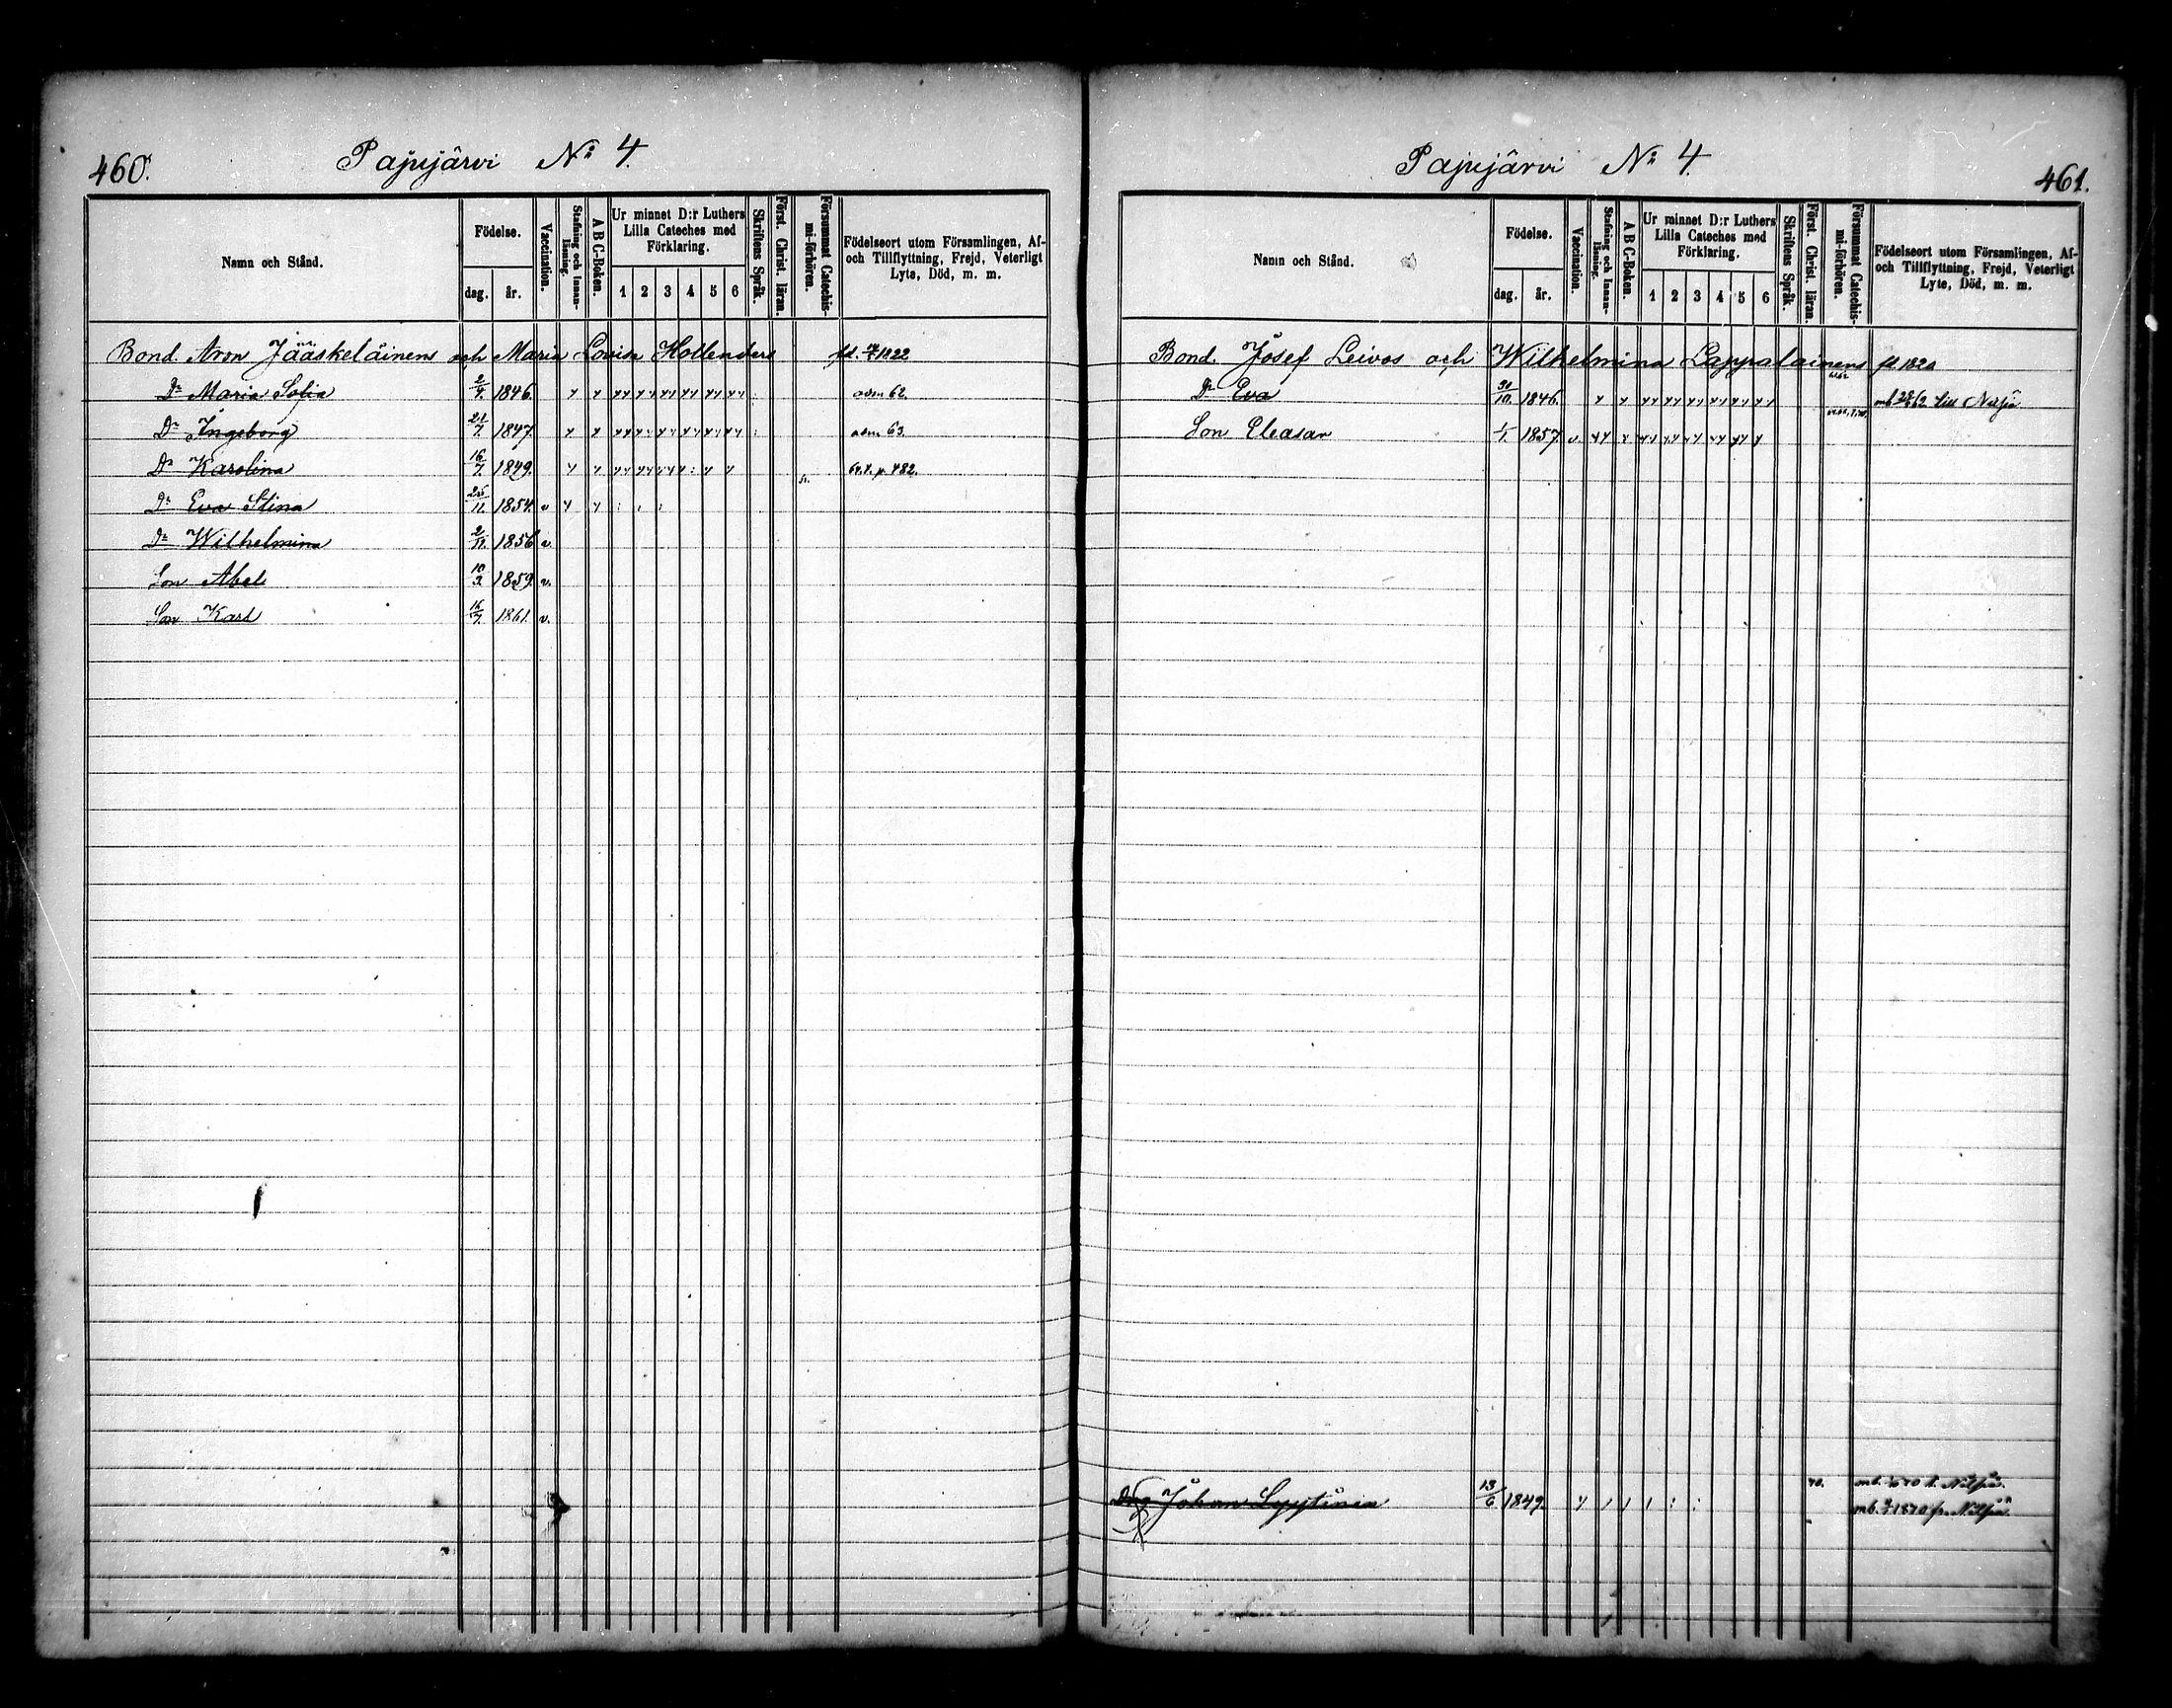 460.
Pajujärvi № 4.
Namn och Stånd.
Födelse.
dag.
år.
Vaccination.
Stafning och Innan-
läsning.
A B C-Boken.
Ur minnet D:r Luthers
Lilla Cateches med
Förklaring.
1 2 3 4 5 6
Skriftens Språk.
Först. Christ. läran.
Försummat Catechis-
mi-förhören.
Födelseort utom Församlingen, Af-
och Tillflyttning, Frejd, Veterligt
Lyte, Död, m. m.
Bond. Aron Jääskeläinens och Maria Lovisa Hollenders fd. 1822
Dr Maria Sofia 2/4. 1846. adm 62.
Dr Ingeborg 21/7. 1847. adm 63.
Dr Karolina 16/7. 1849. p. 482.
Dr Eva Stina 25/11. 1854. v
Dr Wilhelmina 2/11. 1856 v.
Son Abel 10/3. 1859. v.
Son Karl 16/7. 1861. v.
Pajujärvi № 4.
461.
Namn och Stånd.
Födelse.
dag.
år.
Vaccination.
Stafning och Innan-
läsning.
A B C-Boken.
Ur minnet D:r Luthers
Lilla Cateches med
Förklaring.
1 2 3 4 5 6
Skriftens Språk.
Först. Christ. läran.
Försummat Catechis-
mi-förhören.
Födelseort utom Församlingen, Af-
och Tillflyttning, Frejd, Veterligt
Lyte, Död, m. m.
Bond. Josef Leivos och Wilhelmina Lappalainens fd 1820
Dr Eva 30/10. 1846. mb till Nilsiä
Son Eleasar 1/1 1857. v.
Drg Johan Lyytinen 13/6 1849. 70. mb. 70 t. Nilsiä.
mb. 1870 fr. Nilsiä.